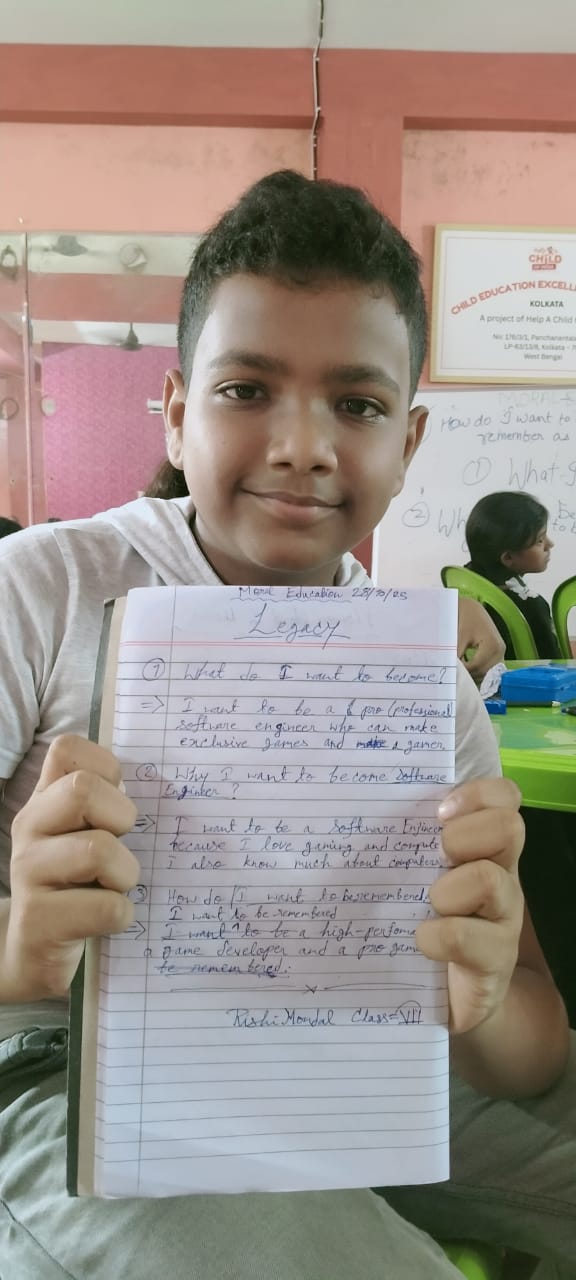 CHILD
CHILD EDUCATION EXCELL
KOLKATA
A project of Help A Child
No: 176/3/1, Panchanantala
LP-63/13/8, Kolkata -
West Bengal
MORAL
How do I want to
remember as
① What
② Wh
Moral Education 28/10/25
Legacy
① What do I want to become?
=> I want to be a pro (professional
software engineer who can make
exclusive games and a gamer.
② Why I want to become Software
Enginker?
=> I want to be a Software Engineer
because I love gaming and compute
I also know much about computers
3 How do I want to be remembered,
I want to be remembered
=> I want to be a high-perfoma
a game developer and a pro game
be remembered.
x
Rishi Mondal Class=VII